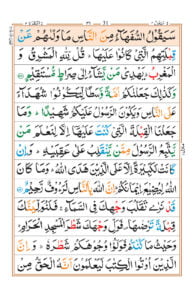 سَيَقُوْلُ السُّفَهَآءُ مِنَ النَّاسِ مَا وَلّٰىهُمْ عَنْ
قِبْلَتِهِمُ الَّتِيْ كَانُوْا عَلَيْهَا ؕ قُلْ لِّلّٰهِ الْمَشْرِقُ وَ
الْمَغْرِبُ ؕ يَهْدِيْ مَنْ يَّشَآءُ اِلٰى صِرَاطٍ مُّسْتَقِيْمٍ
وَكَذٰلِكَ جَعَلْنٰكُمْ اُمَّةً وَّسَطًا لِّتَكُوْنُوْا شُهَدَآءَ
عَلَى النَّاسِ وَيَكُوْنَ الرَّسُوْلُ عَلَيْكُمْ شَهِيْدًا ؕ وَمَا
جَعَلْنَا الْقِبْلَةَ الَّتِيْ كُنْتَ عَلَيْهَآ اِلَّا لِنَعْلَمَ مَنْ
يَّتَّبِعُ الرَّسُوْلَ مِمَّنْ يَّنْقَلِبُ عَلٰى عَقِبَيْهِ ؕ وَاِنْ
كَانَتْ لَكَبِيْرَةً اِلَّا عَلَى الَّذِيْنَ هَدَى اللّٰهُ ؕ وَمَا كَانَ
اللّٰهُ لِيُضِيْعَ اِيْمَانَكُمْ ؕ اِنَّ اللّٰهَ بِالنَّاسِ لَرَءُوْفٌ رَّحِيْمٌ
قَدْ نَرٰى تَقَلُّبَ وَجْهِكَ فِي السَّمَآءِ ۚ فَلَنُوَلِّيَنَّكَ
قِبْلَةً تَرْضٰىهَا ۪ فَوَلِّ وَجْهَكَ شَطْرَ الْمَسْجِدِ الْحَرَامِ ؕ
وَحَيْثُ مَا كُنْتُمْ فَوَلُّوْا وُجُوْهَكُمْ شَطْرَهٗ ؕ وَاِنَّ
الَّذِيْنَ اُوْتُوا الْكِتٰبَ لَيَعْلَمُوْنَ اَنَّهُ الْحَقُّ مِنْ